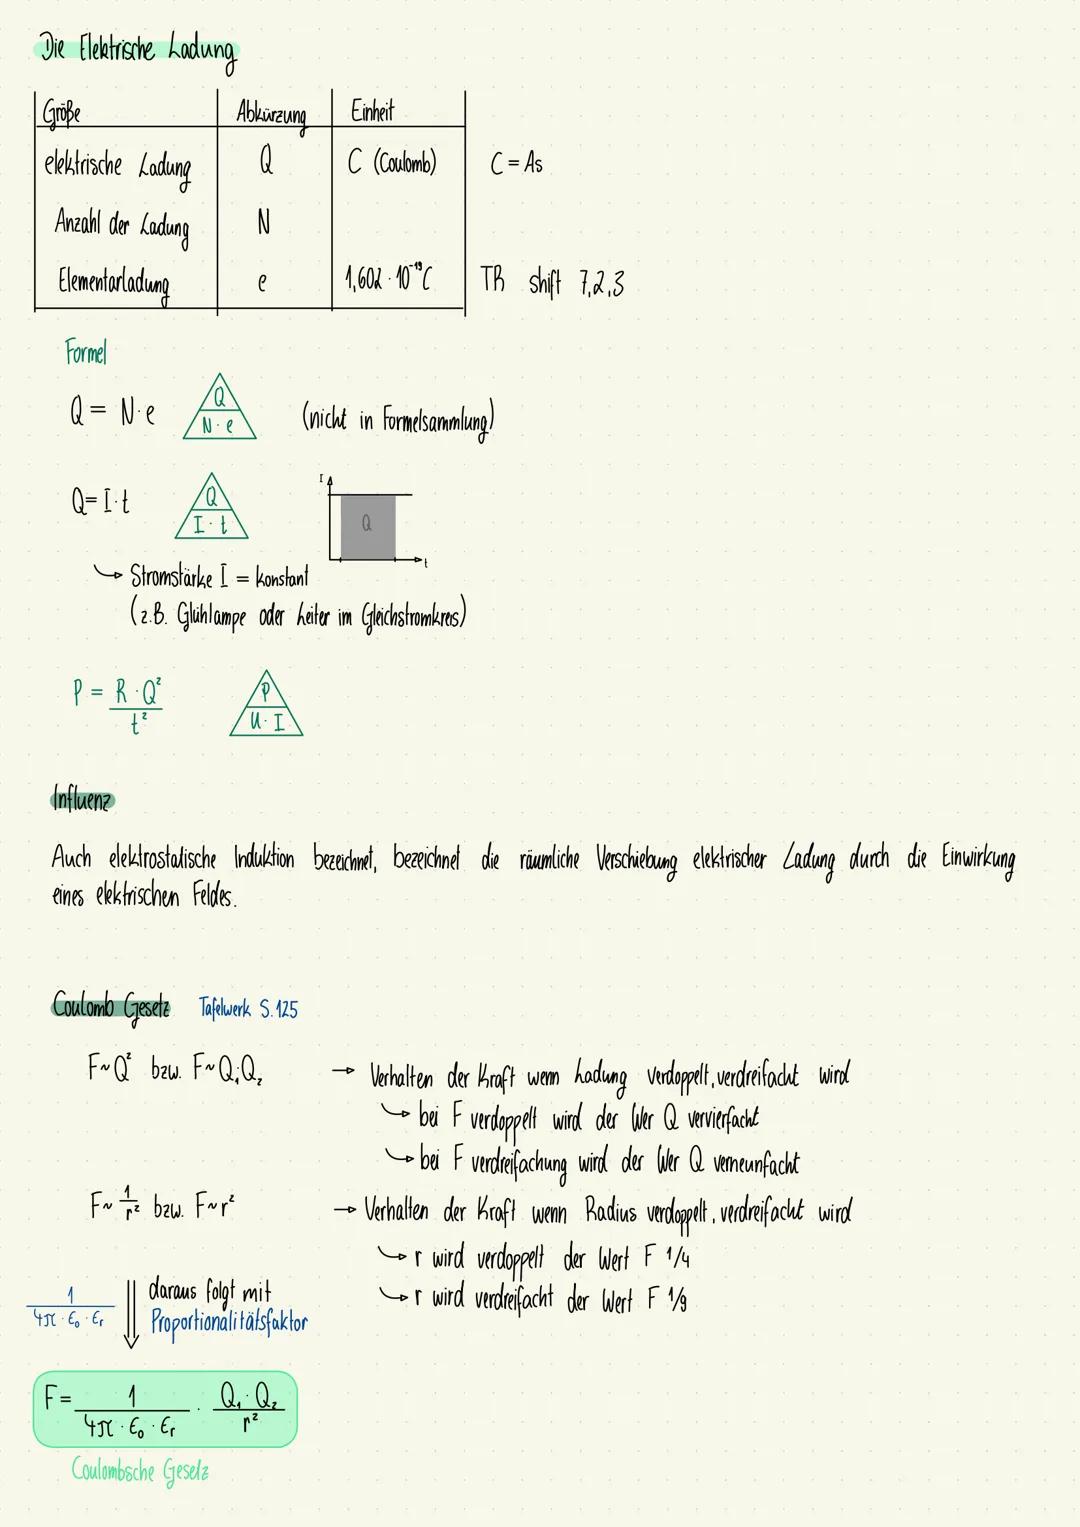 Die Elektrische Ladung
Größe Abkürzung Einheit
elektrische Ladung Q C (Coulomb) C = As
Anzahl der Ladung N
Elementarladung e 1,602 · 10⁻¹⁹ C TR shift 7,2,3
Formel
Q = N · e Q N · e (nicht in Formelsammlung)
Q = I · t Q I · t I Q t
↳ Stromstärke I = konstant
(z.B. Glühlampe oder Leiter im Gleichstromkreis)
P = R · Q² / t² P U · I
Influenz
Auch elektrostatische Induktion bezeichnet, bezeichnet die räumliche Verschiebung elektrischer Ladung durch die Einwirkung
eines elektrischen Feldes.
Coulomb Gesetz Tafelwerk S. 125
F ~ Q² bzw. F ~ Q₁·Q₂ → Verhalten der Kraft wenn Ladung verdoppelt, verdreifacht wird
↳ bei F verdoppelt wird der Wer Q vervierfacht
↳ bei F verdreifachung wird der Wer Q verneunfacht
F ~ 1/r² bzw. F ~ r² → Verhalten der Kraft wenn Radius verdoppelt, verdreifacht wird
↳ r wird verdoppelt der Wert F 1/4
↳ r wird verdreifacht der Wert F 1/9
1 / 4π · ε₀ · εᵣ ⇓ daraus folgt mit
Proportionalitätsfaktor
F = 1 / 4π · ε₀ · εᵣ · Q₁ · Q₂ / r²
Coulombsche Gesetz